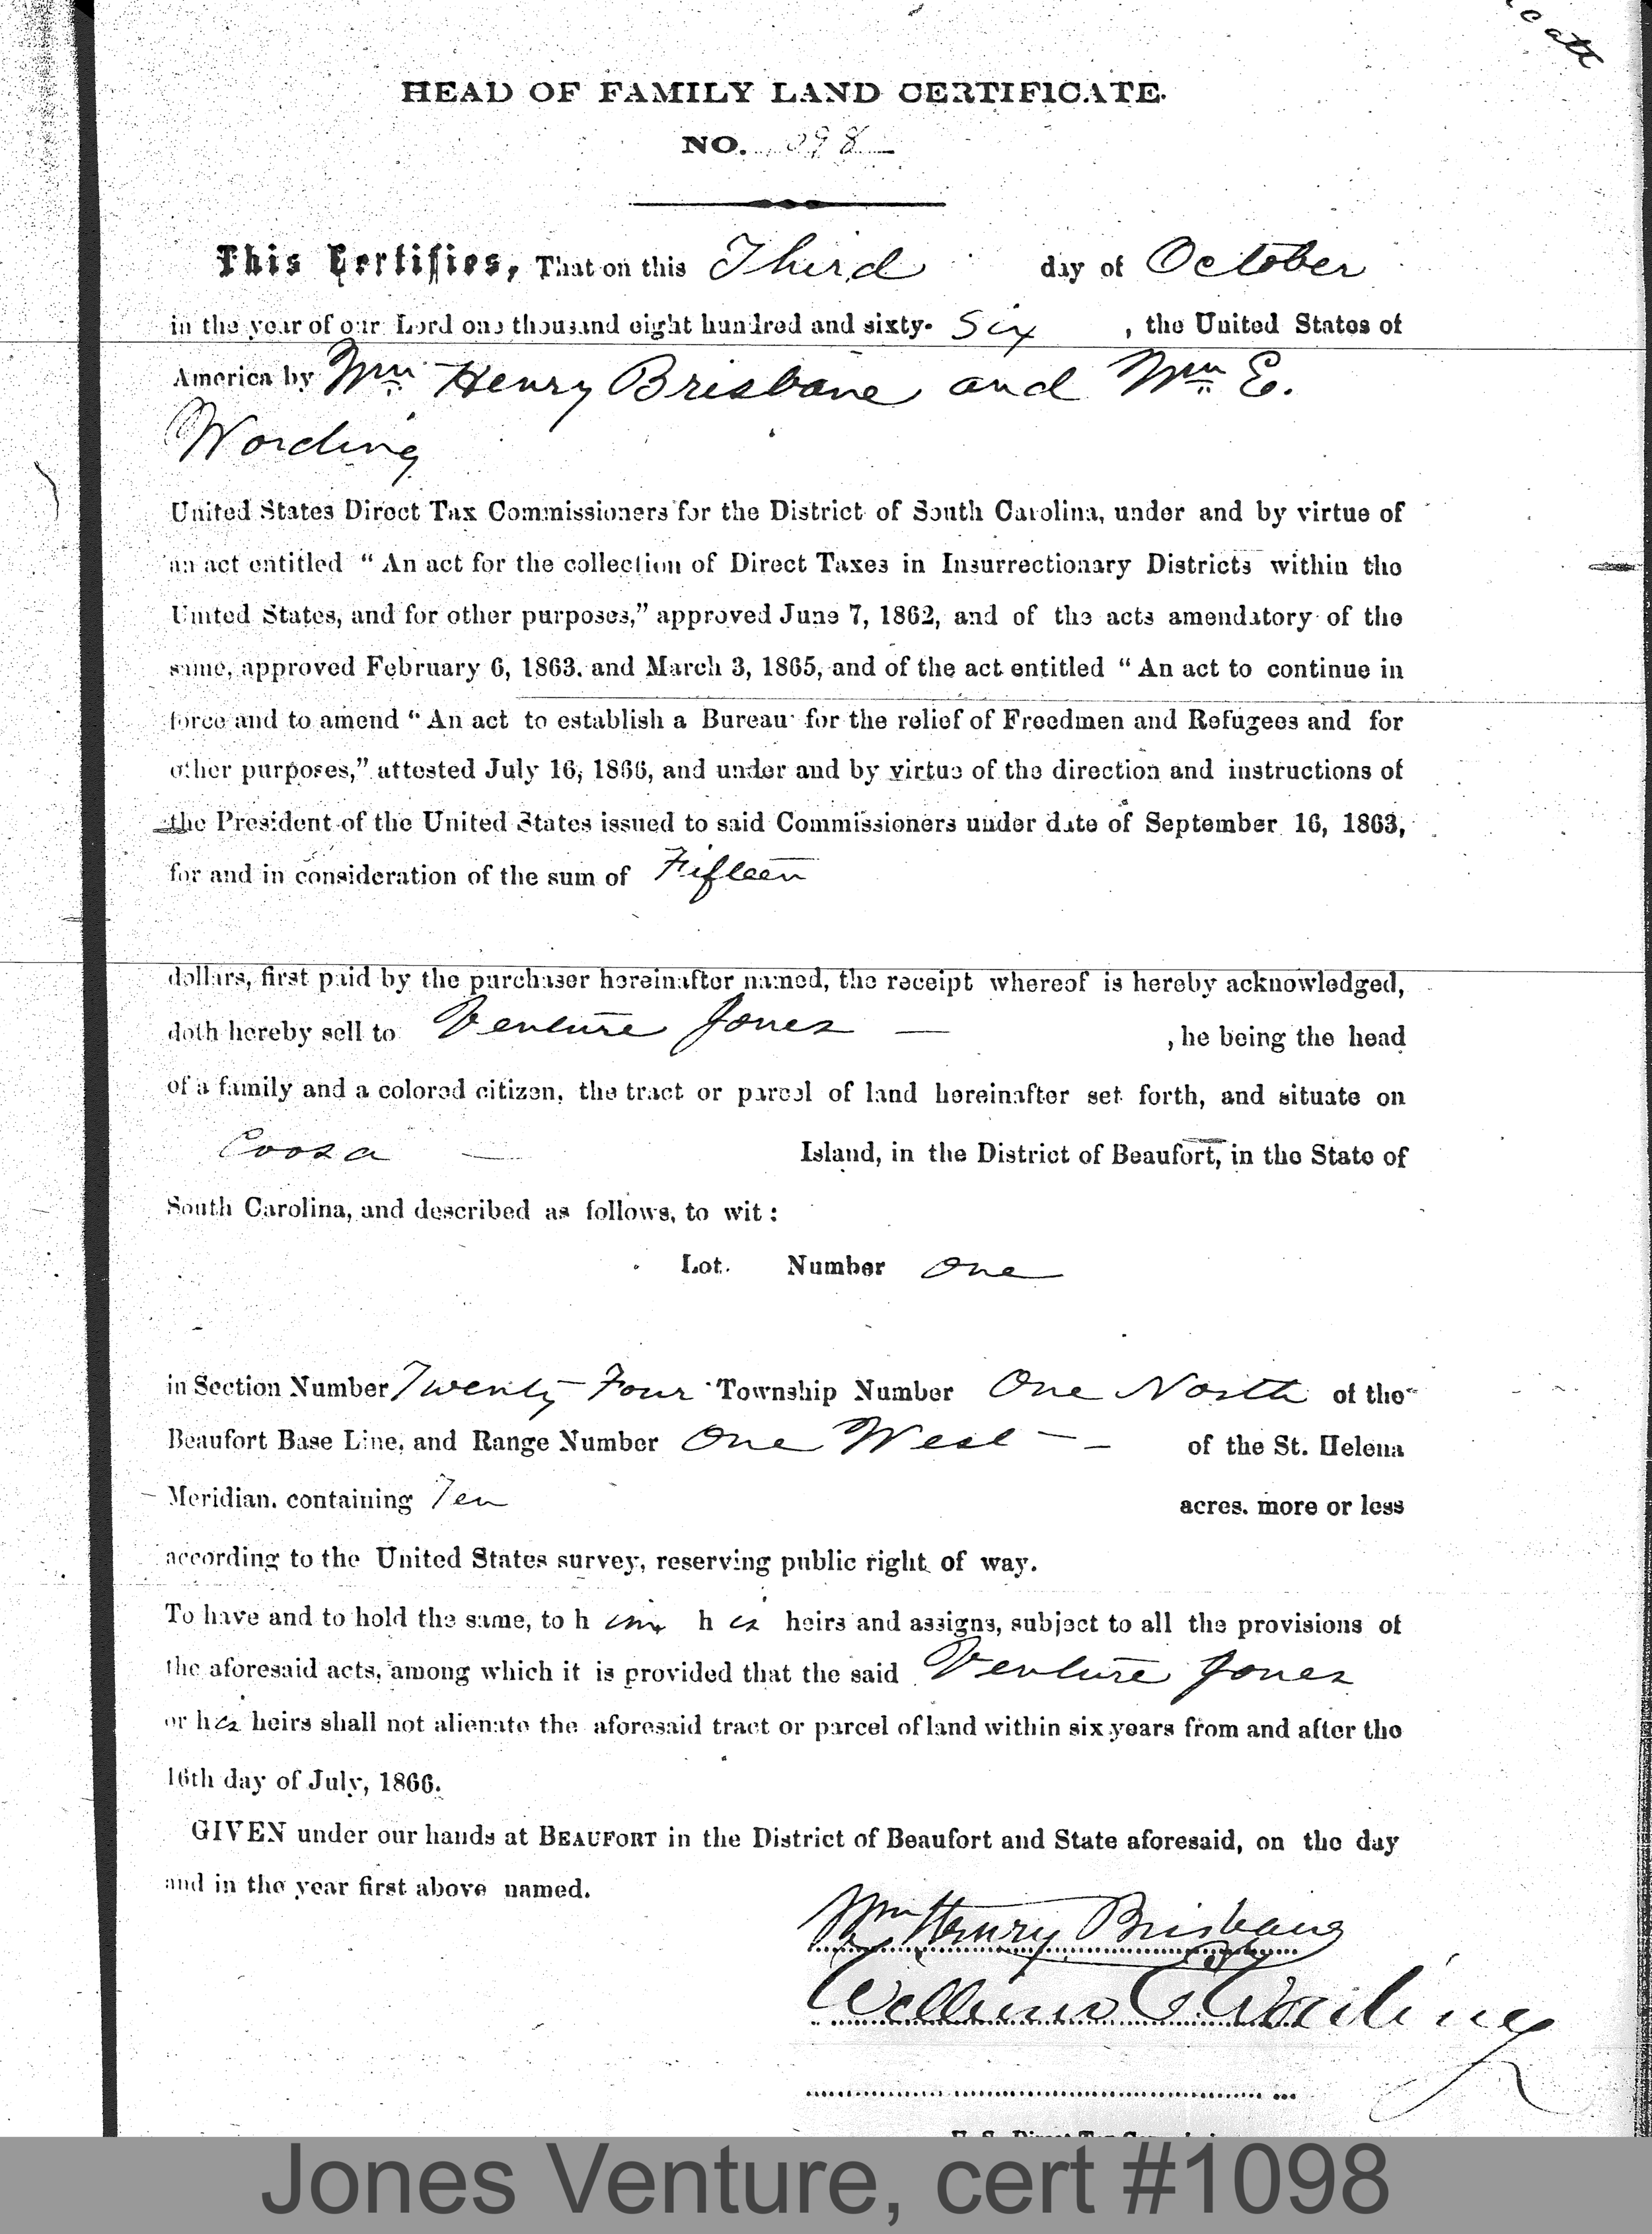 HEAD OF FAMILY LAND CERTIFICATE.
NO. 1098
This Certifies, That on this Third day of October
in the year of our Lord one thousand eight hundred and sixty- Six , the United States of
America by Wm Henry Brisbane and Wm E.
Wording
United States Direct Tax Commissioners for the District of South Carolina, under and by virtue of
an act entitled “ An act for the collection of Direct Taxes in Insurrectionary Districts within the
United States, and for other purposes,” approved June 7, 1862, and of the acts amendatory of the
same, approved February 6, 1863. and March 3, 1865, and of the act entitled “ An act to continue in
force and to amend “ An act to establish a Bureau for the relief of Freedmen and Refugees and for
other purposes,” attested July 16, 1866, and under and by virtue of the direction and instructions of
the President of the United States issued to said Commissioners under date of September 16, 1863,
for and in consideration of the sum of Fifteen
dollars, first paid by the purchaser hereinafter named, the receipt whereof is hereby acknowledged,
doth hereby sell to Venture Jones — , he being the head
of a family and a colored citizen, the tract or parcel of land hereinafter set forth, and situate on
Coosa — Island, in the District of Beaufort, in the State of
South Carolina, and described as follows, to wit :
Lot. Number One
in Section Number Twenty Four Township Number One North of the
Beaufort Base Line, and Range Number One West - - of the St. Helena
Meridian. containing Ten acres. more or less
according to the United States survey, reserving public right of way.
To have and to hold the same, to h im h is heirs and assigns, subject to all the provisions of
the aforesaid acts, among which it is provided that the said Venture Jones
or his heirs shall not alienate the aforesaid tract or parcel of land within six years from and after the
16th day of July, 1866.
GIVEN under our hands at BEAUFORT in the District of Beaufort and State aforesaid, on the day
and in the year first above named.
Wm Henry Brisbane
William E Wording
Jones Venture, cert #1098